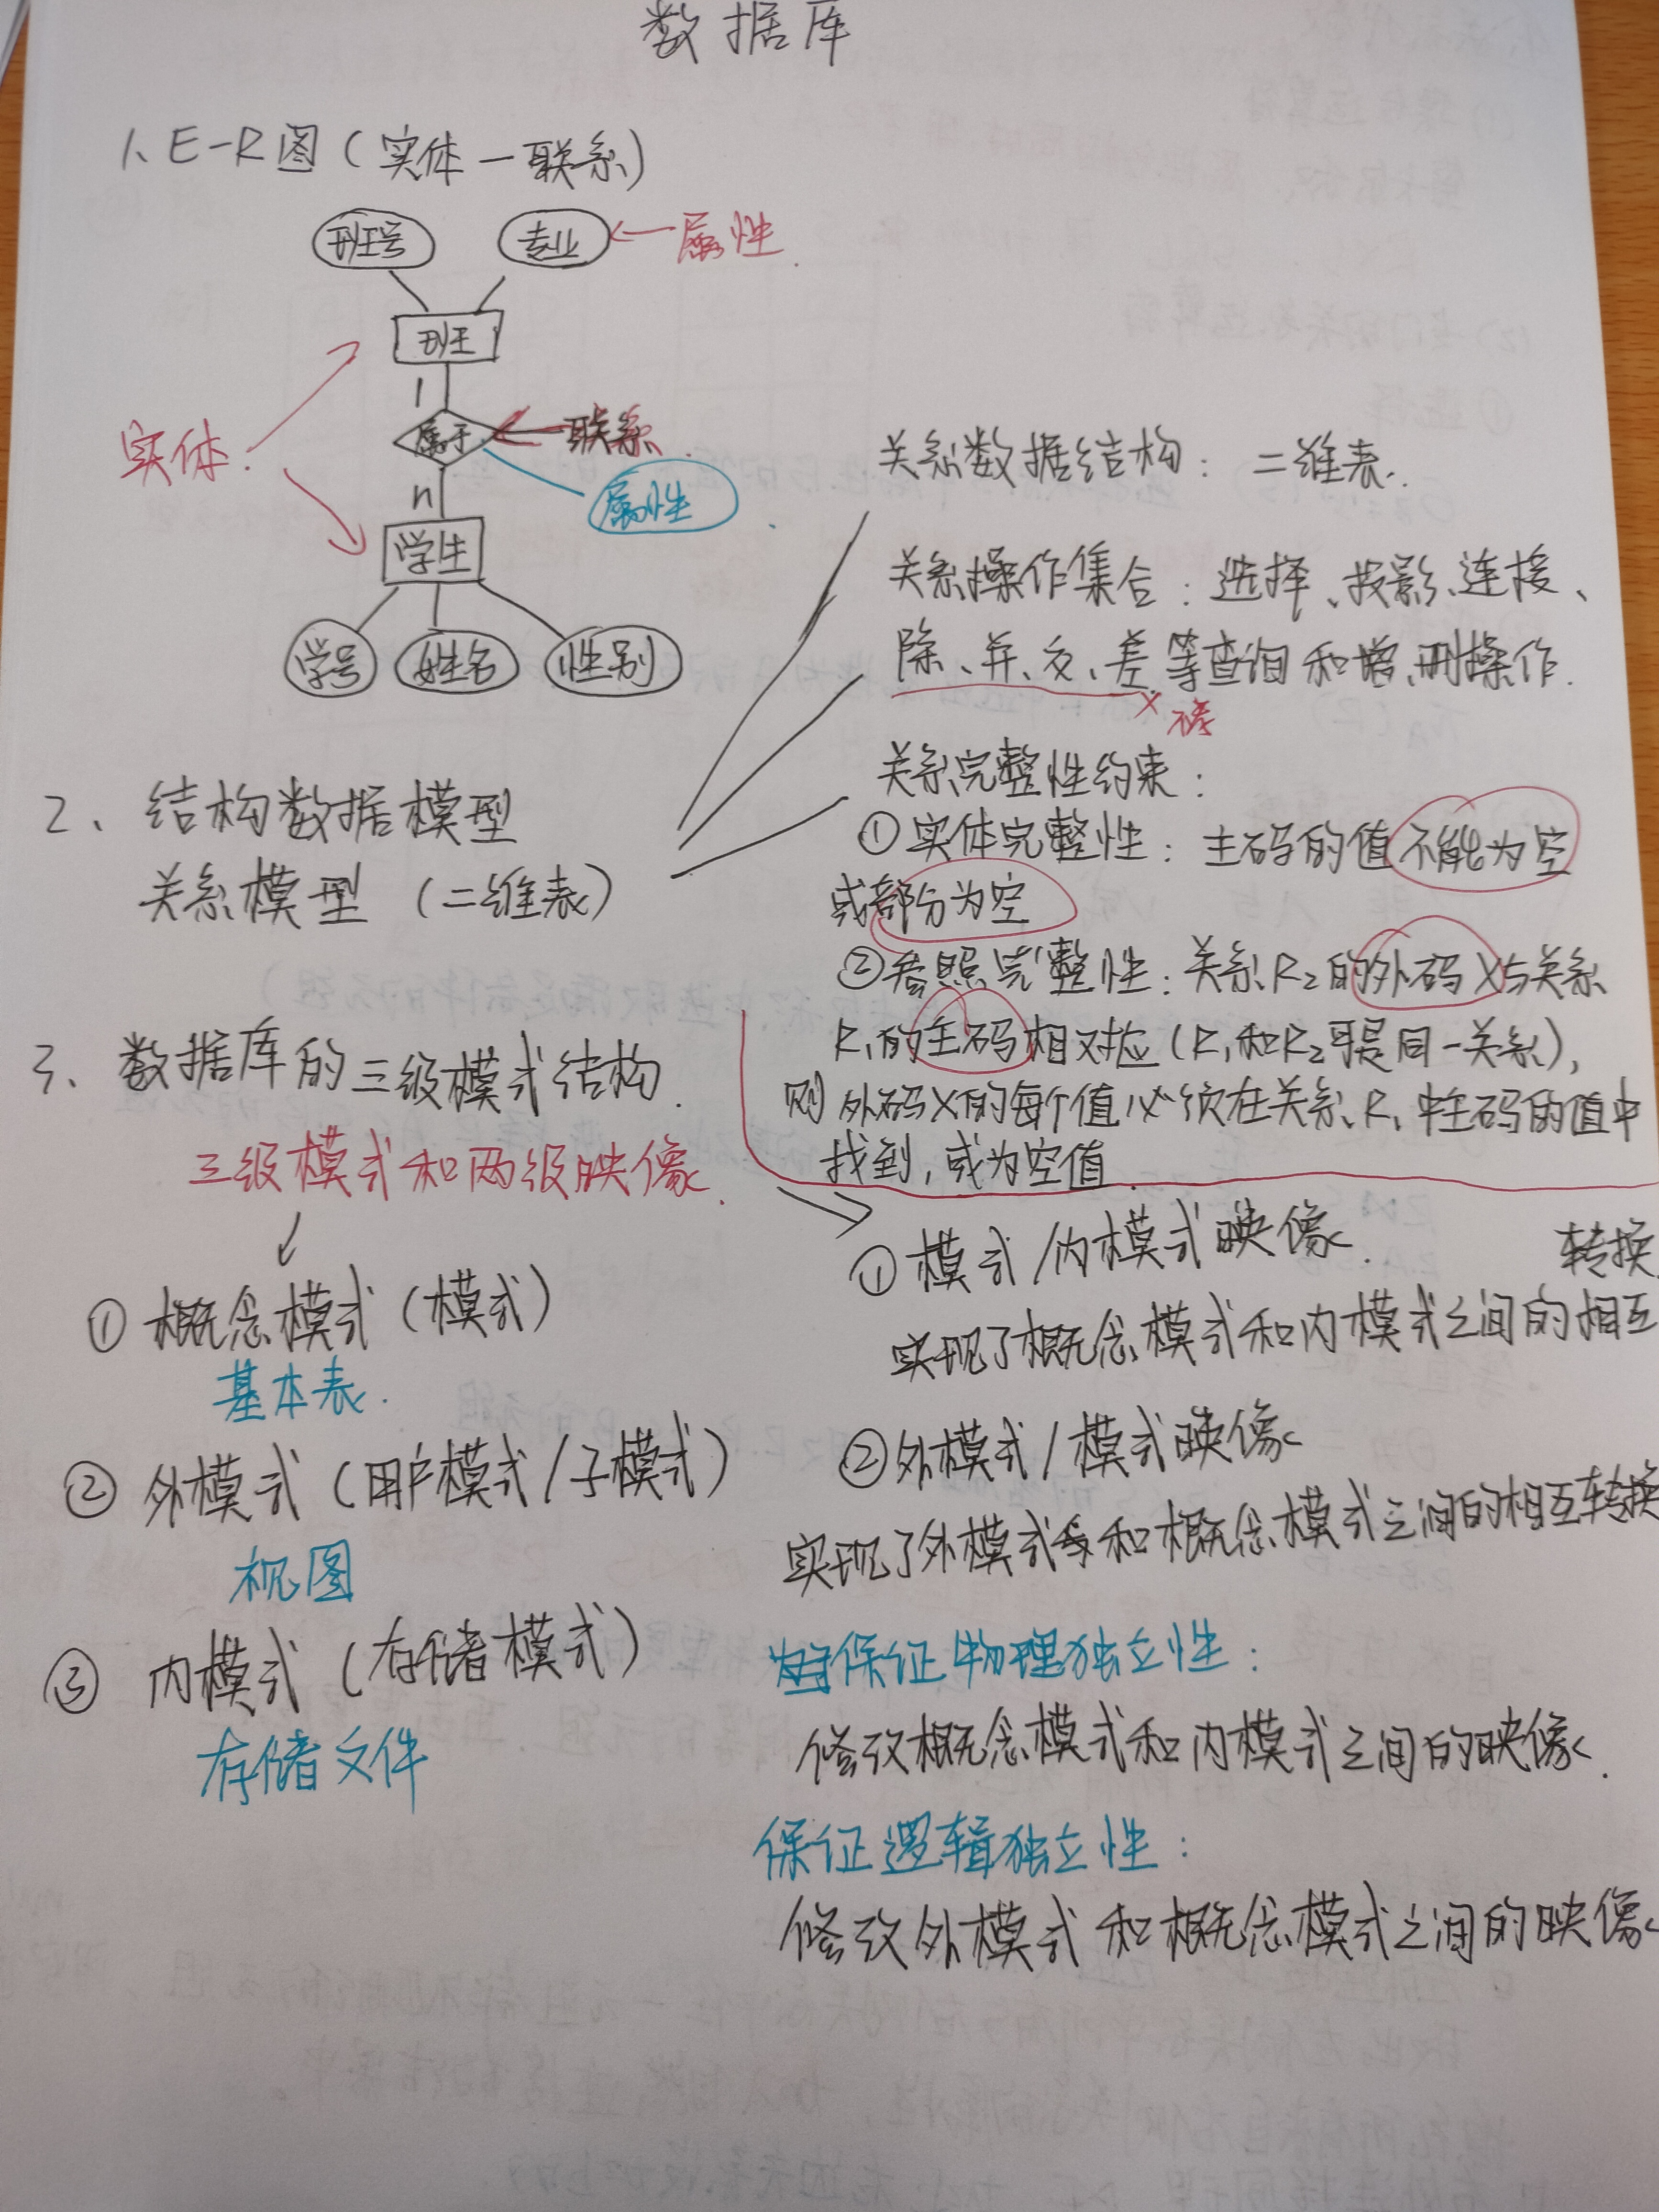 数据库
1、E-R图(实体-联系)
班号
专业
属性
班
1
实体
属于
联系
属性
n
学生
学号
姓名
性别
2、结构数据模型
关系模型(二维表)
关系数据结构:二维表.
关系操作集合:选择、投影、连接、
除、并、交、差等查询和增、删操作.
关系完整性约束:
①实体完整性:主码的值不能为空
或部分为空
②参照完整性:关系R2的外码X与关系
R1的主码相对应(R1和R2可是同一关系),
则外码X的每个值必须在关系R1中主码的值中
找到,或为空值.
3、数据库的三级模式结构.
三级模式和两级映像.
①概念模式(模式)
基本表.
②外模式(用户模式/子模式)
视图
③内模式(存储模式)
存储文件
①模式/内模式映像.
实现了概念模式和内模式之间的相互
转换
②外模式/模式映像
实现了外模式和概念模式之间的相互转换
保证物理独立性:
修改概念模式和内模式之间的映像.
保证逻辑独立性:
修改外模式和概念模式之间的映像